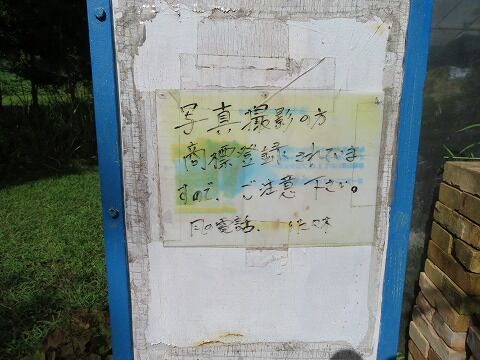 写真撮影の方
商標登録されていま
すので、ご注意下さい。